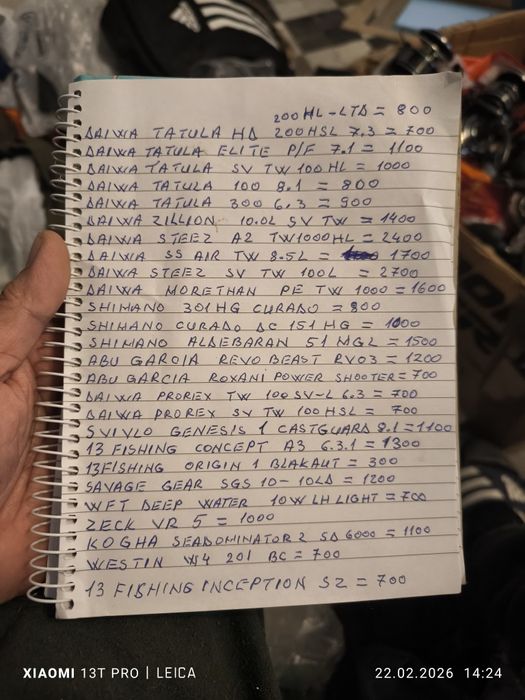 200HL-LTD = 800
DAIWA TATULA HD 200HSL 7.3 = 700
DAIWA TATULA ELITE P/F 7.1 = 1100
DAIWA TATULA SV TW 100 HL = 1000
DAIWA TATULA 100 8.1 = 800
DAIWA TATULA 300 6.3 = 900
DAIWA ZILLION 10.0L SV TW = 1400
DAIWA STEEZ A2 TW1000HL = 2400
DAIWA SS AIR TW 8.5L = 1700
DAIWA STEEZ SV TW 100L = 2700
DAIWA MORETHAN PE TW 1000 = 1600
SHIMANO 301HG CURADO = 800
SHIMANO CURADO DC 151 HG = 1000
SHIMANO ALDEBARAN 51 MGL = 1500
ABU GARCIA REVO BEAST RVO3 = 1200
ABU GARCIA ROXANI POWER SHOOTER = 700
DAIWA PROREX TW 100 SV-L 6.3 = 700
DAIWA PROREX SV TW 100 HSL = 700
SVIVLO GENESIS 1 CASTGUARD 8.1 = 1100
13 FISHING CONCEPT A3 6.3.1 = 1300
13FISHING ORIGIN 1 BLAKAUT = 300
SAVAGE GEAR SGS 10-10LD = 1200
WFT DEEP WATER 10W LH LIGHT = 700
ZECK VR 5 = 1000
KOGHA SEADOMINATOR 2 SD 6000 = 1100
WESTIN W4 201 BC = 700
13 FISHING INCEPTION SZ = 700
XIAOMI 13T PRO | LEICA
22.02.2026 14:24